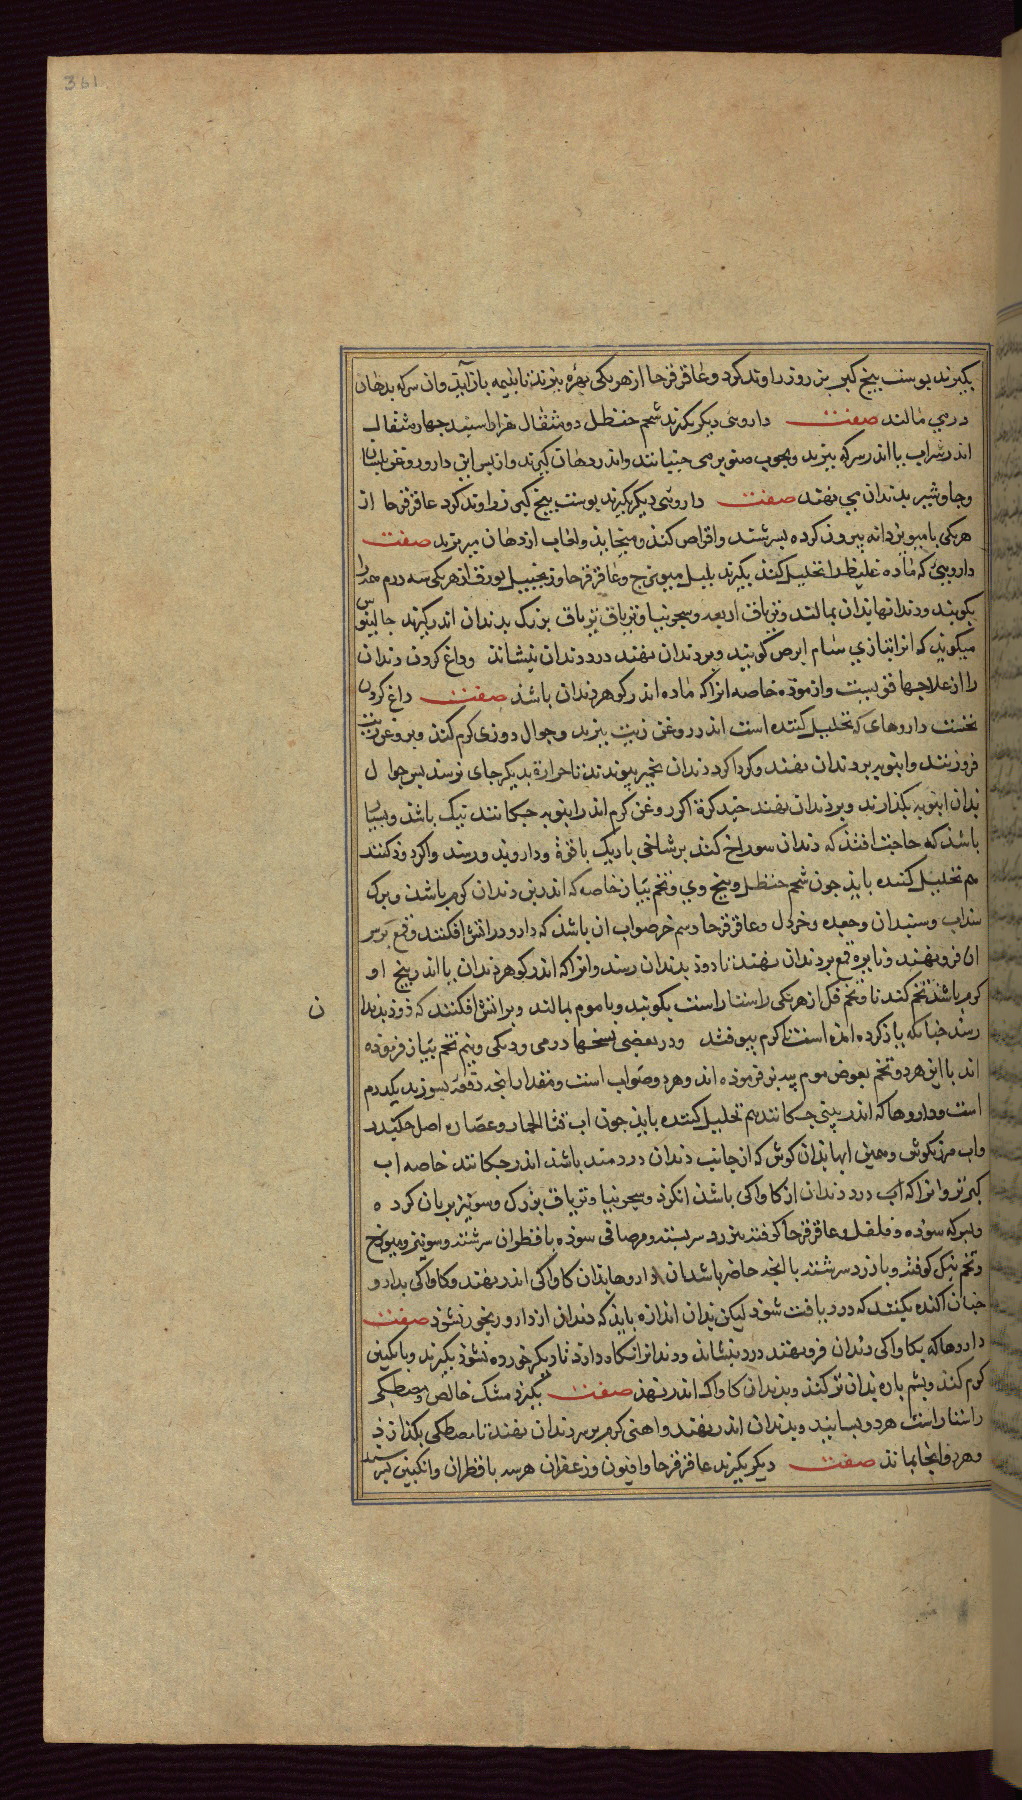 361
بگیرند پوست بیخ کبر بزر وزراوند کرد و عاقرقرحا از هریکی بهره بپزند تا بنیمه بازآید وان سرکه بدهان
درمی مالند صفت داروئی دیکر بگیرند شحم حنظل دو مثقال هزاراسپند چهار مثقال
اندر شراب یا اندر سرکه بپزند وبچوب صنوبر می جنبانند واندر دهان گیرند واز پس این دارو روغن بلسان
وجاوشیر بدندان می نهند صفت داروئی دیکر بگیرند پوست بیخ کبر زراوند کرد عاقرقرحا از
هریکی با میویز دانه بیرون کرده بسرشند واقراص کنند ومیخایند ولعاب از دهان میریزند صفت
داروئی که ماده غلیظ را تحلیل کند بگیرند پلپل میویزج وعاقرقرحا وزنجبیل بورق از هریکی سه درم همه را
بکوبند ودندانها بدان بمالند وتریاق اربعه وسجرنیا وتریاق بزرک بدندان اندر گیرند جالینوس
میکوید که انرا بتازی سام ابرص کویند وبر دندان نهند درد دندان بنشاند وداغ کردن دندان
را از علاجها قویست وازموده خاصه انرا که ماده اندر کوهر دندان باشد صفت داغ کردن
نخست داروهای که تحلیل کننده است اندر روغن زیت بپزند وجوال دوزی کرم کنند وبروغن زیت
فروزنند وانبوبه بر دندان نهند وکرداکرد دندان بخمیر بپوندند تا حرارة بدیکر جای نرسد پس جوال
بدان انبوبه بگذارند وبر دندان نهند چند کرة اکر روغن کرم اندر انبوبه چکانند نیک باشد وبسیار
باشد که حاجت افتد که دندان سوراخ کنند
هم تحلیل کننده باید چون شحم حنظل وبیخ وی وتخم پیاز خاصه که اندر بن دندان کرم باشد وبرک
سنداب وسپندان وجعده وخردل وعاقرقرحا وسم خر صواب ان باشد که دارو در اتش افکنند وقمع بر سر
ان فرونهند ونایزه قمع بر دندان نهند تا دود بدندان رسد وانرا که اندر کوهر دندان یا اندر بیخ او
کرم باشد تخم کندنا وتخم از هریکی راستاراست بکوبند وبا موم بمالند وبر اتش افکنند که دود بدندان
ن
رسد چنانکه یاد کرده امده است تا کرم بیوفتد ودر بعضی نسخها درمی ودیکی ونیم تخم پیاز فرموده
اند با این هردو تخم بعوض موم پیه بز فرموده اند وهردو صواب است ومقدار انچه دفعه بسوزند یکدرم
است وداروها که اندر بینی چکانند هم تحلیل کننده باید چون اب قثاالحمار وعصاره اصل
واب مرزنکوش وهمین ابها بدان کوش که از جانب دندان دردمند باشد اندر چکانند خاصه اب
کبر تر وانرا که درد دندان از کاواکی باشد انکژد وسجرنیا وتریاق بزرک وشونیز بریان کرده
وبسرکه سوده وفلفل وعاقرقرحا کوفته بزرد سرشته ومرصافی سوده با قطران سرشته وشونیز ومیویزج
وتخم کوفته وبازرد سرشته یا انچه حاضر باشد از داروها بدان کاواکی اندر نهند وکاواکی بدارو
چنان اکنده بکنند که درد یافت شود لیکن بدان اندازه باید که دندان از دارو رنجور نشود صفت
داروها که بکاواکی دندان فرونهند درد بنشاند ودندانرا نکاه دارد تا دیکر خورده نشود بگیرند وبانکبین
کرم کنند وپشم پاره بدان تر کنند وبدندان کاواک اندر نهند صفت بگیرند مشک خالص ومصطکی
راستاراست هردو بسایند وبدندان اندر نهند واهنی کرم بر سر دندان نهند تا مصطکی بگدازد
وهردو انجا بماند صفت دیکر بگیرند عاقرقرحا وافیون وزعفران هرسه با قطران وانکبین بسرشند